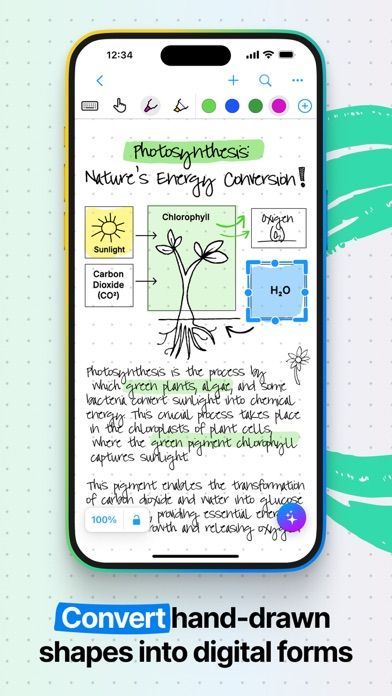 12:34
Photosynthesis:
Nature's Energy Conversion!
Sunlight
Chlorophyll
Oxygen
O₂
Carbon
Dioxide
(CO²)
H₂O
Photosynthesis is the process by
which green plants, algae, and some
bacteria convert sunlight into chemical
energy. This crucial process takes place
in the chloroplasts of plant cells,
where the green pigment chlorophyll
captures sunlight.
This pigment enables the transformation
of carbon dioxide and water into glucose
100%
, providing essential
and releasing
Convert hand-drawn
shapes into digital forms